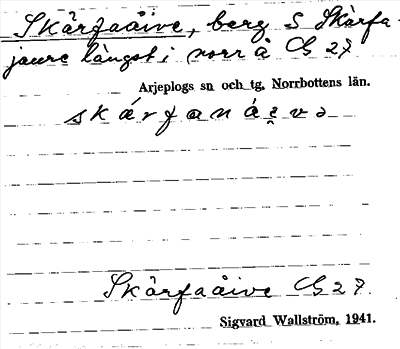 Skårfaåive, berg S Skårfa-
jaure längst i norr å G 27
Arjeplogs sn och tg, Norrbottens län.
skárfanái̯və
Skårfaåive G 27.
Sigvard Wallström, 1941.